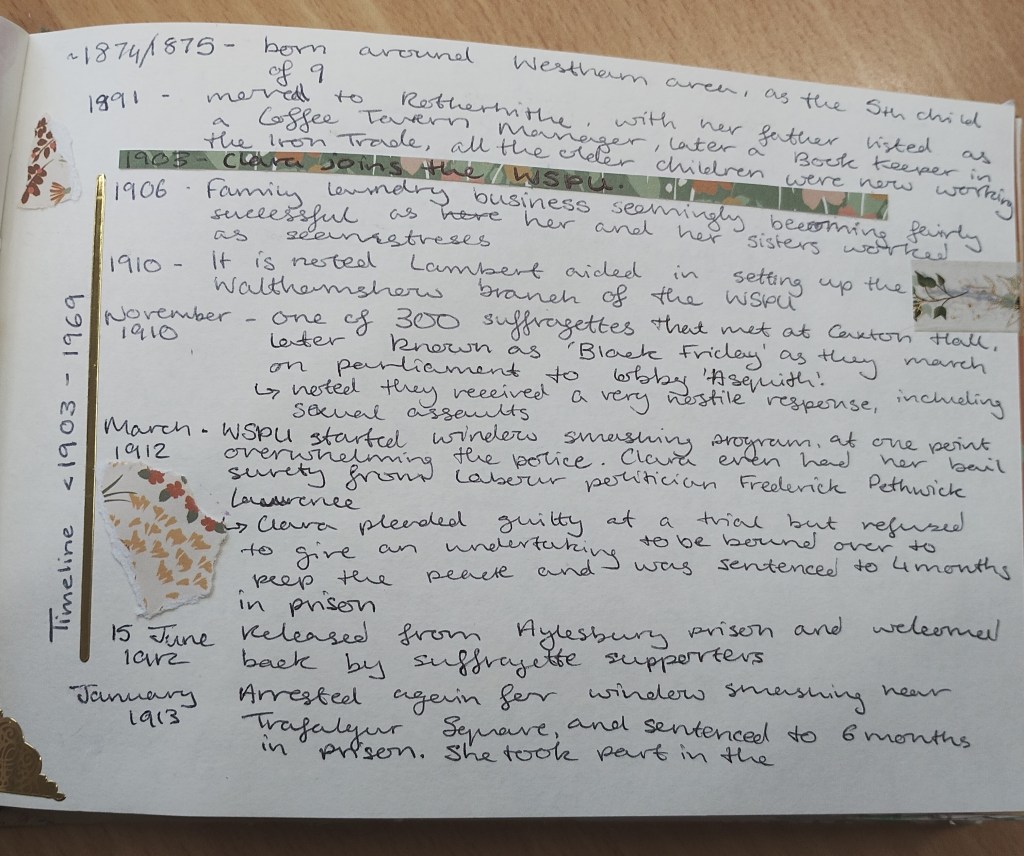 ~1874/1875 - born around Westham area, as the 5th child
of 9
1891 - moved to Rotherhithe, with her father listed as
a Coffee Tavern Manager, later a Book Keeper in
the Iron Trade, all the older children were now working
1903 - Clara joins the WSPU.
1906 - Family laundry business seemingly becoming fairly
successful as here her and her sisters worked
as seamstreses
1910 - It is noted Lambert aided in setting up the
Walthamshow branch of the WSPU
November 1910 - one of 300 suffragettes that met at Caxton Hall,
later known as 'Black Friday' as they march
on parliament to lobby 'Asequith'.
↳ noted they received a very hostile response, including
sexual assaults
March 1912 - WSPU started window smashing program, at one point
overwhelming the police. Clara even had her bail
surety from Labour politician Frederick Pethwick
Lawrence
↳ Clara pleaded guilty at a trial but refused
to give an undertaking to be bound over to
keep the peace and was sentenced to 4 months
in prison
15 June 1912 Released from Aylesbury prison and welcomed
back by suffragette supporters
January 1913 Arrested again for window smashing near
Trafalgur Square, and sentenced to 6 months
in prison. She took part in the
Timeline <1903 - 1969